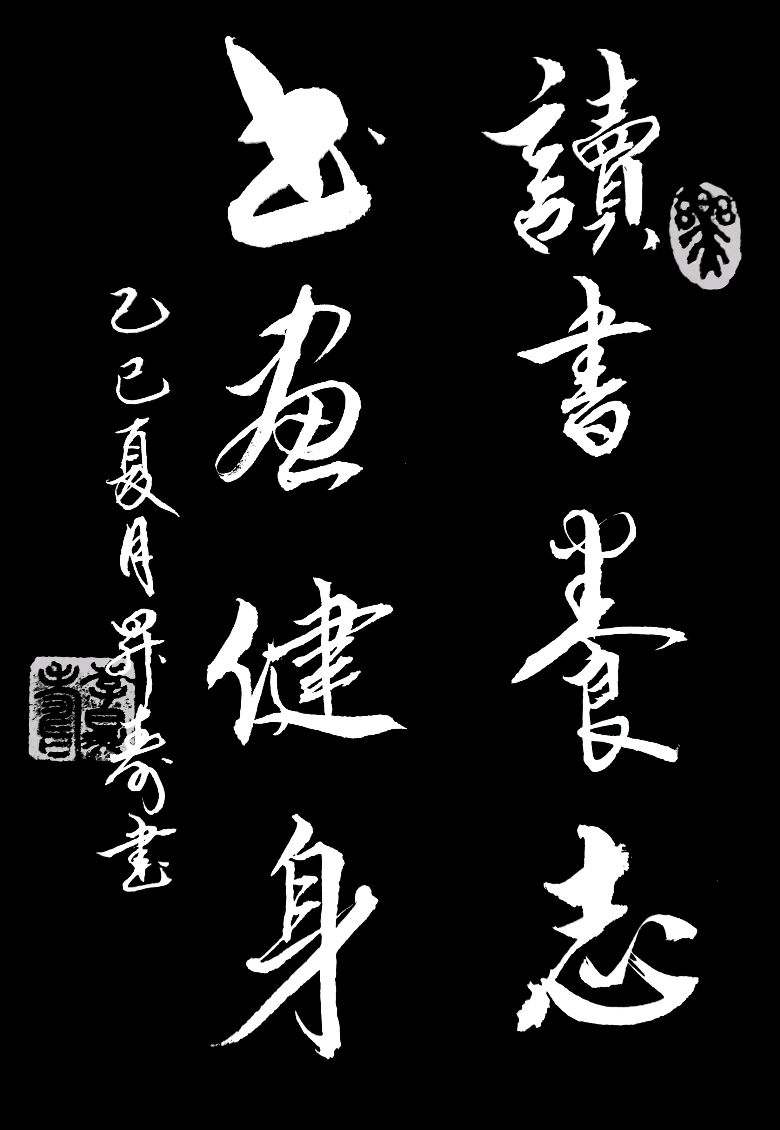 讀書養志
书画健身
乙巳夏月昇寿書